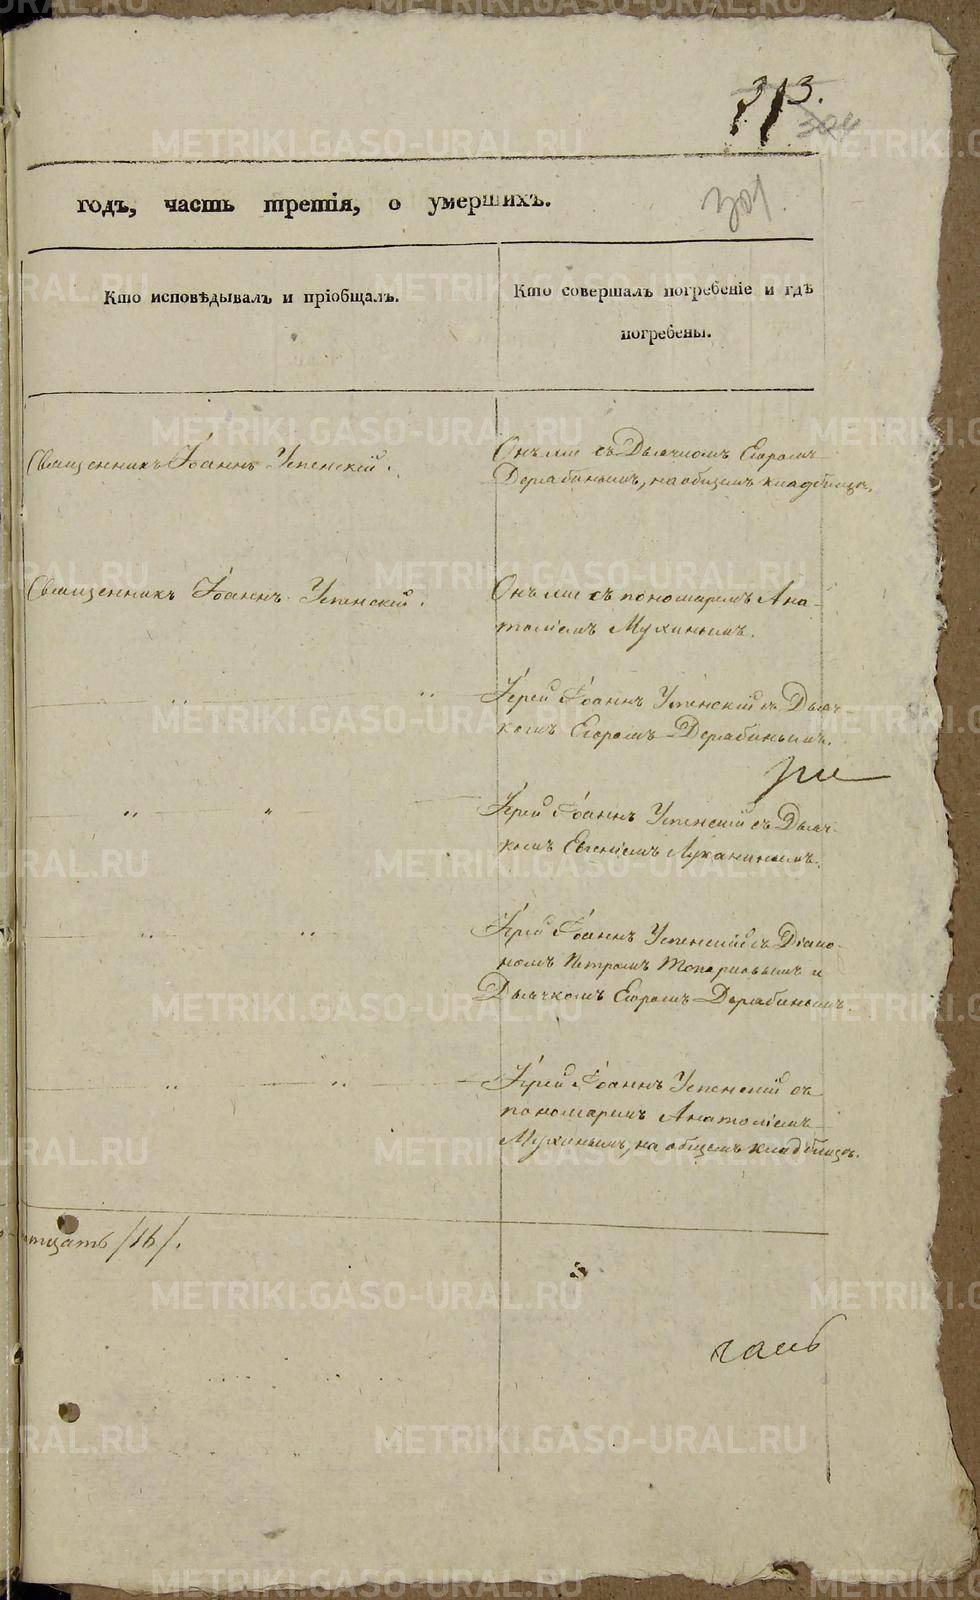 313.
304
301
годъ, часть третія, о умершихъ.
Кто исповѣдывалъ и пріобщалъ.
Кто совершалъ погребеніе и гдѣ
погребены.
Священникъ Іоаннъ Успенскій.
Онъ же съ Дьячкомъ Егоромъ
Дерябинымъ, на общемъ кладбищѣ.
Священникъ Іоаннъ Успенскій.
Онъ же съ пономаремъ Ана-
толіемъ Мухинымъ.
Іерей Іоаннъ Успенскій съ Дьяч-
комъ Егоромъ Дерябинымъ.
Іерей Іоаннъ Успенскій съ Дьяч-
комъ Евгеніемъ
Іерей Іоаннъ Успенскій съ Діако-
номъ Петромъ и
Дьячкомъ Егоромъ Дерябинымъ.
Іерей Іоаннъ Успенскій съ
пономаремъ Анатоліемъ
Мухинымъ, на общемъ кладбищѣ.
/16/.
METRIKI.GASO-URAL.RU